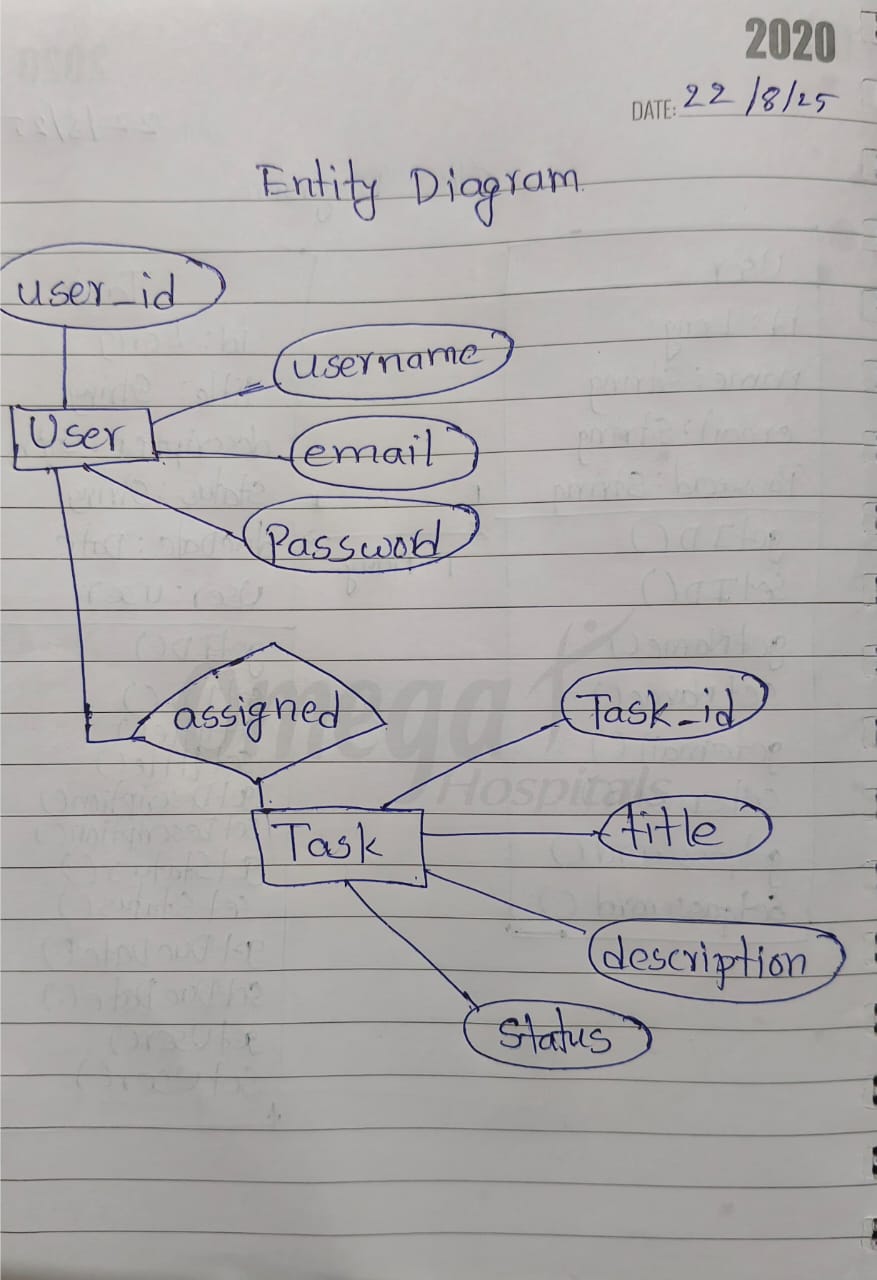 2020
DATE: 22/8/25
Entity Diagram.
user_id
username
User
email
Password
assigned
Task_id
Omega
Hospitals
title
Task
description
status